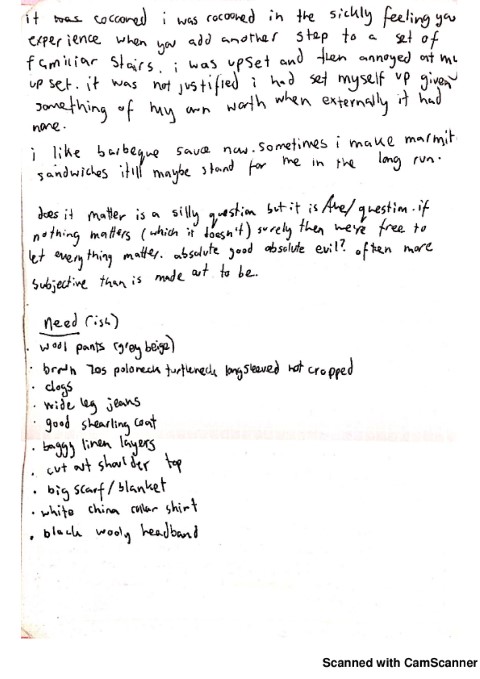 it was coccooned i was cocooned in the sickly feeling you
experience when you add another step to a set of
familiar stairs. i was upset and then annoyed at my
upset. it was not justified i had set myself up given
something of my own worth when externally it had
none.
i like barbeque sauce now. sometimes i make marmite
sandwiches itll maybe stand for me in the long run.
does it matter is a silly question but it is /the/ question. if
nothing matters (which it doesn't) surely then we're free to
let everything matter. absolute good absolute evil? often more
subjective than is made out to be.
need (ish)
· wool pants (grey beige)
· brown 70s poloneck turtleneck longsleeved not cropped
· clogs
· wide leg jeans
· good shearling coat
· baggy linen layers
· cut out shoulder top
· big scarf/blanket
· white china collar shirt
· black wooly headband
Scanned with CamScanner